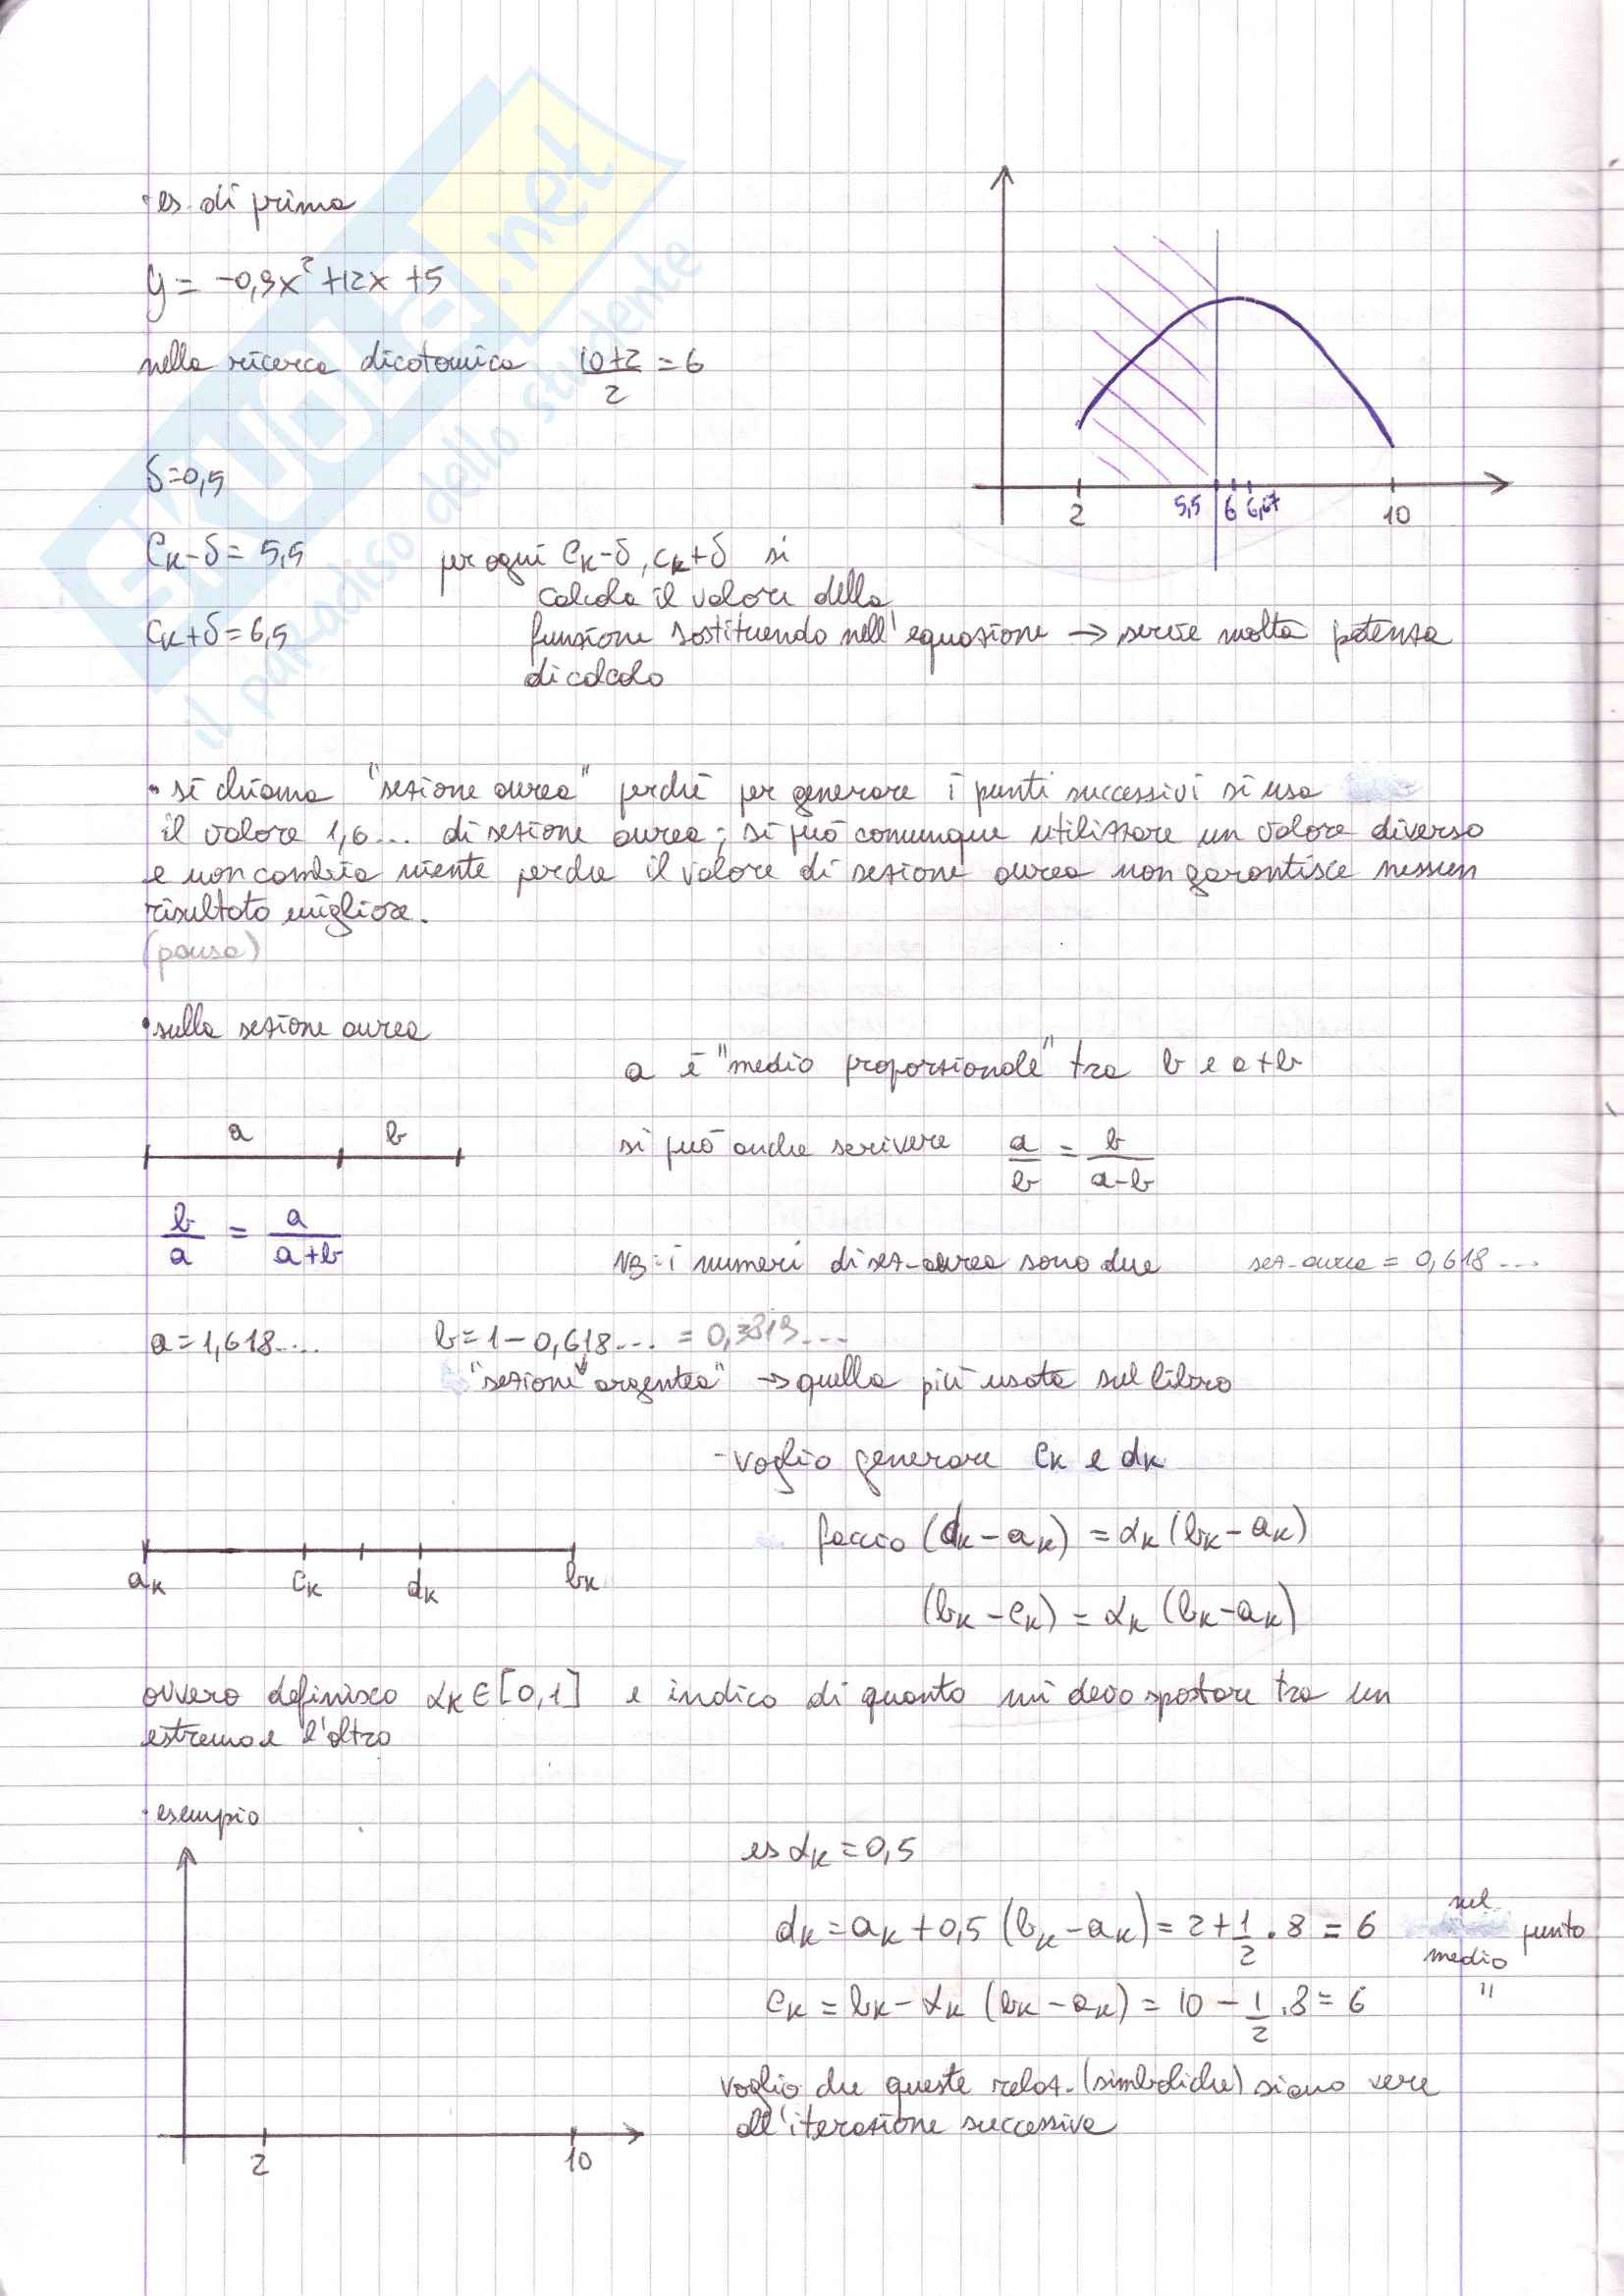 • es. di prima
y = -0,9x² + 12x + 5
nella ricerca dicotomica (10+2)/2 = 6
δ=0,5
cₖ-δ = 5,5
per ogni cₖ-δ, cₖ+δ si
calcola il valore della
cₖ+δ=6,5
funzione sostituendo nell'equazione → serve molta potenza
di calcolo
2 5,5 6 6,67 10
• si chiama "sezione aurea" perché per generare i punti successivi si usa
il valore 1,6... di sezione aurea; si può comunque utilizzare un valore diverso
e non cambia niente perché il valore di sezione aurea non garantisce nessun
risultato migliore.
(pausa)
• sulla sezione aurea
a è "medio proporzionale" tra b e a+b
a b
si può anche scrivere a/b = b/(a-b)
b/a = a/(a+b)
NB: i numeri di sez-aurea sono due sez-aurea = 0,618...
a=1,618... b=1-0,618... = 0,3819...
"sezione argentea" → quella più usata sul libro
- voglio generare cₖ e dₖ
faccio (dₖ-aₖ) = αₖ(bₖ-aₖ)
aₖ cₖ dₖ bₖ
(bₖ-cₖ) = αₖ (bₖ-aₖ)
ovvero definisco αₖ∈[0,1] e indico di quanto mi devo spostare tra un
estremo e l'altro
• esempio
es αₖ=0,5
dₖ=aₖ+0,5 (bₖ-aₖ)= 2+1/2 · 8 = 6 nel punto
medio
cₖ = bₖ - αₖ (bₖ-aₖ) = 10 - 1/2 · 8 = 6 "
voglio che queste relaz. (simboliche) siano vere
all'iterazione successiva
2 10
SKUOLA.net
il paradiso dello studente